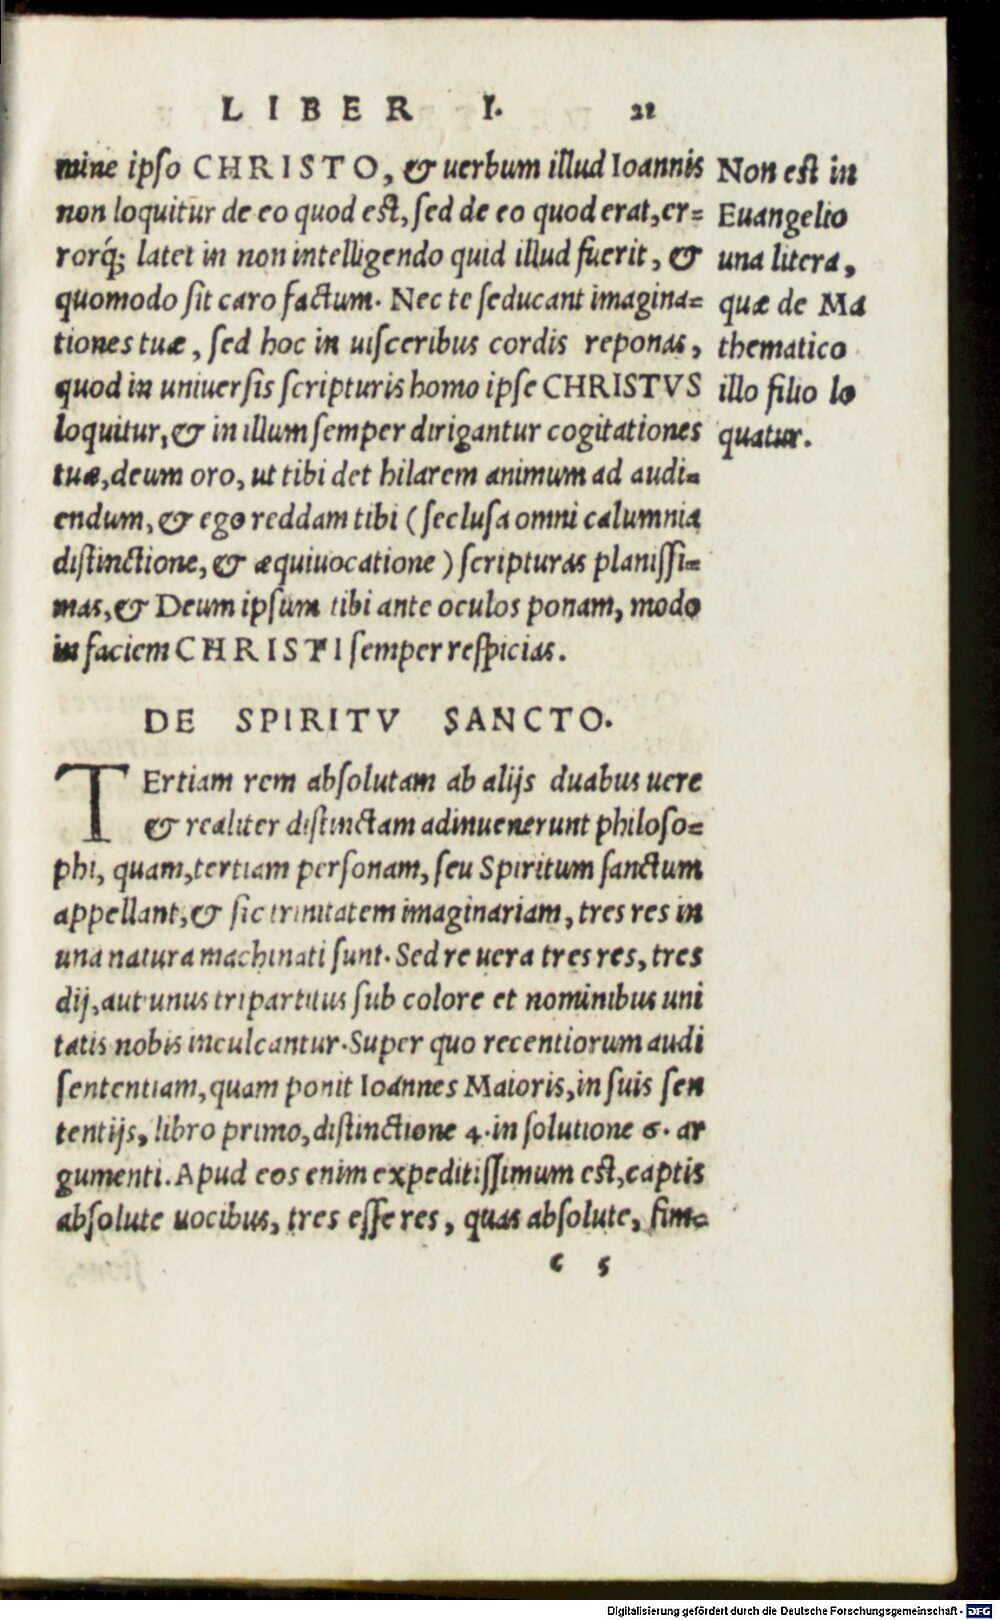 LIBER I. 21
mine ipſo CHRISTO, & uerbum illud Ioannis
non loquitur de eo quod eſt, ſed de eo quod erat, er=
rorq́; latet in non intelligendo quid illud fuerit, &
quomodo ſit caro factum. Nec te ſeducant imagina=
tiones tuæ, ſed hoc in uiſceribus cordis reponas,
quod in uniuerſis ſcripturis homo ipſe CHRISTVS
loquitur, & in illum ſemper dirigantur cogitationes
tuæ, deum oro, ut tibi det hilarem animum ad audi=
endum, & ego reddam tibi (ſecluſa omni calumnia
diſtinctione, & æquiuocatione) ſcripturas planiſſi=
mas, & Deum ipſum tibi ante oculos ponam, modo
in faciem CHRISTI ſemper reſpicias.
Non eſt in
Euangelio
una litera,
quæ de Ma
thematico
illo filio lo
quatur.
DE SPIRITV SANCTO.
TErtiam rem abſolutam ab alijs duabus uere
& realiter diſtinctam adinuenerunt philoſo=
phi, quam, tertiam perſonam, ſeu Spiritum ſanctum
appellant, & ſic trinitatem imaginariam, tres res in
una natura machinati ſunt. Sed re uera tres res, tres
dij, aut unus tripartitus ſub colore et nominibus uni
tatis nobis inculcantur. Super quo recentiorum audi
ſententiam, quam ponit Ioannes Maioris, in ſuis ſen
tentijs, libro primo, diſtinctione 4. in ſolutione 6. ar
gumenti. Apud eos enim expeditiſſimum eſt, captis
abſolute uocibus, tres eſſe res, quas abſolute, ſim=
c 5
Digitalisierung gefördert durch die Deutsche Forschungsgemeinschaft - DFG